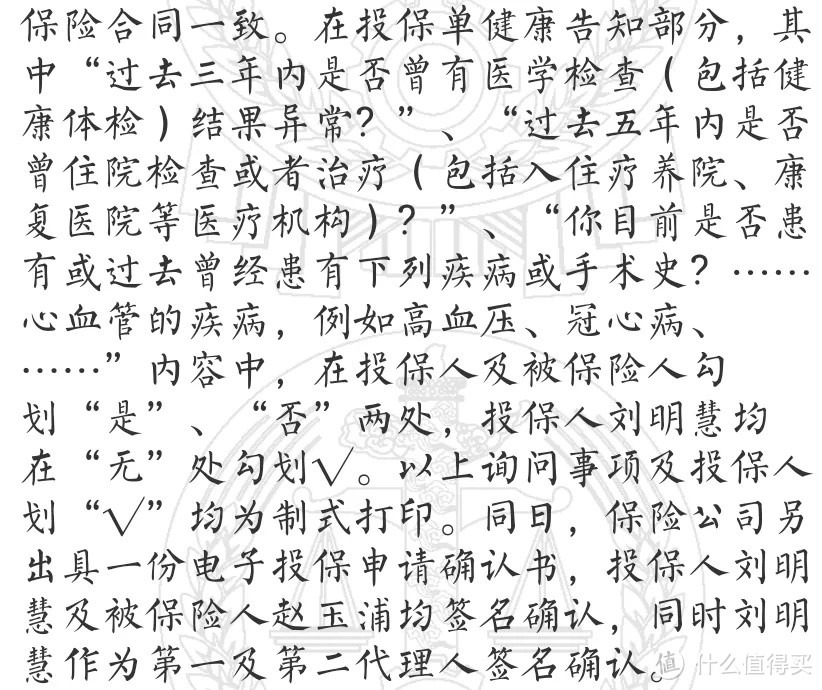 保险合同一致。在投保单健康告知部分，其
中“过去三年内是否曾有医学检查（包括健
康体检）结果异常？”、“过去五年内是否
曾住院检查或者治疗（包括入住疗养院、康
复医院等医疗机构）？”、“你目前是否患
有或过去曾经患有下列疾病或手术史？……
心血管的疾病，例如高血压、冠心病、
……”内容中，在投保人及被保险人勾
划“是”、“否”两处，投保人刘明慧均
在“无”处勾划√。以上询问事项及投保人
划“√”均为制式打印。同日，保险公司另
出具一份电子投保申请确认书，投保人刘明
慧及被保险人赵玉浦均签名确认，同时刘明
慧作为第一及第二代理人签名确认。
值 什么值得买